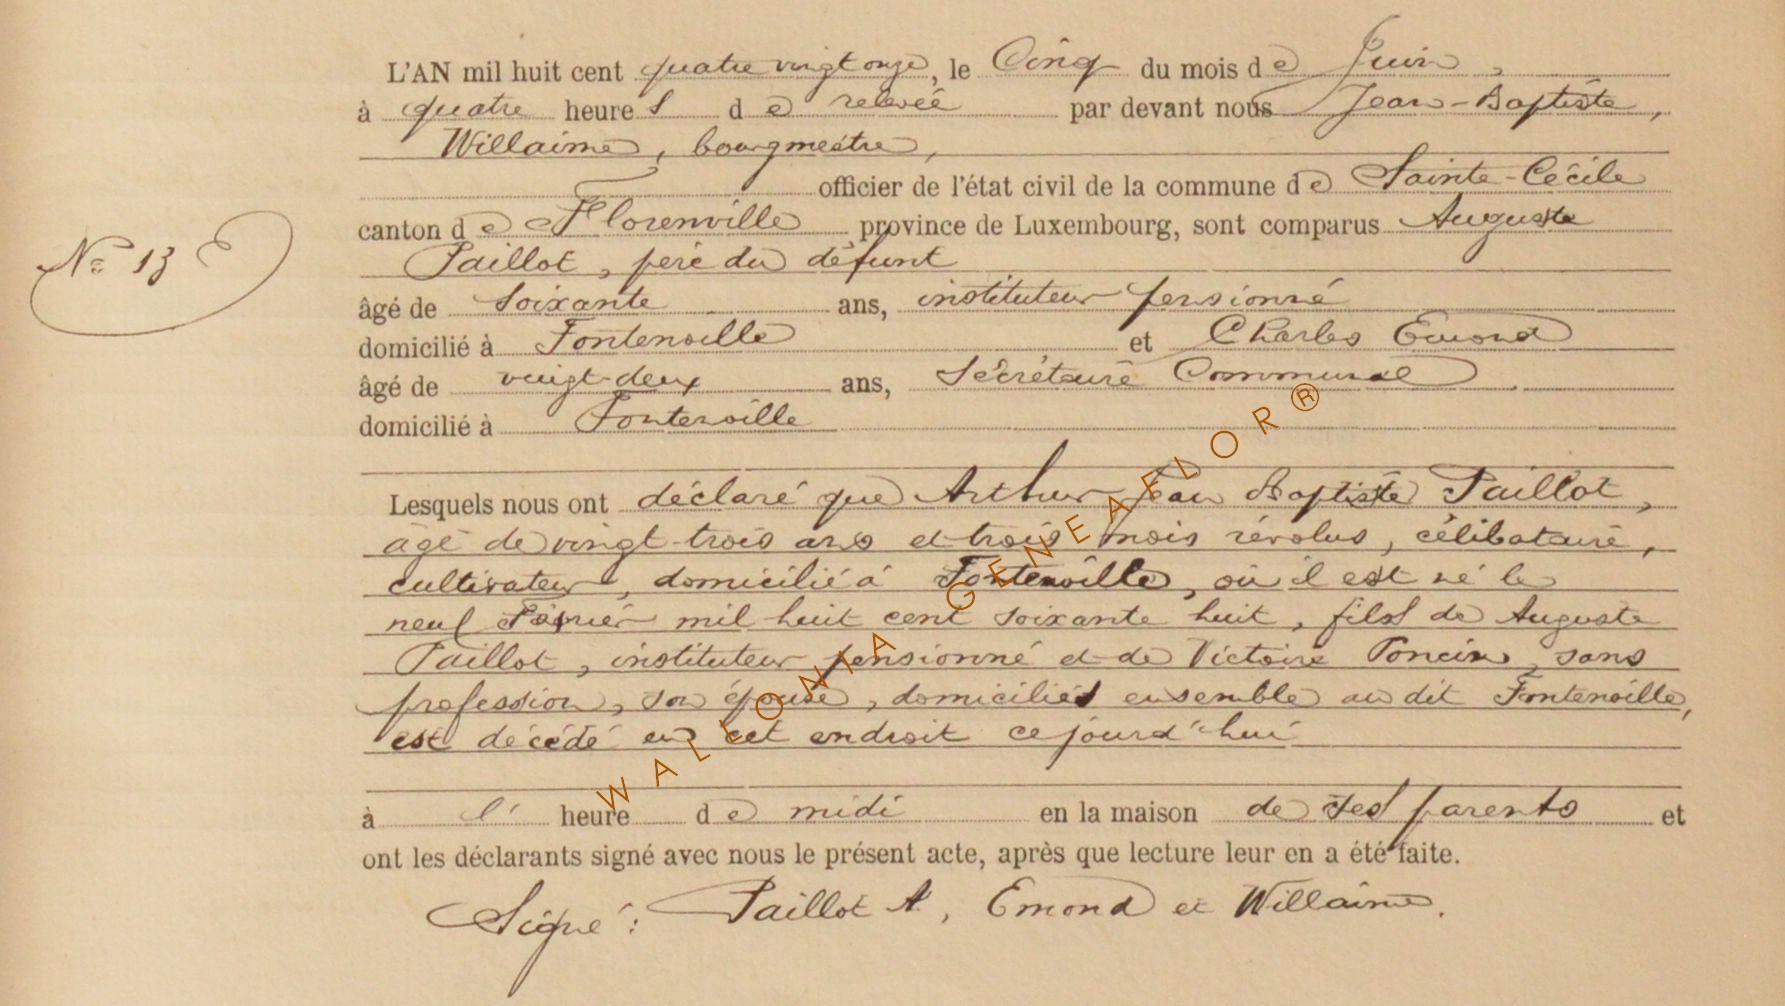 L'AN mil huit cent quatre vingt onze, le Cinq du mois de Juin,
à quatre heures de relevée par devant nous Jean-Baptiste,
Willaime, bourgmestre,
officier de l'état civil de la commune de Sainte-Cécile
canton de Florenville province de Luxembourg, sont comparus Auguste
N° 13
Paillot, père du défunt
âgé de soixante ans, instituteur pensionné
domicilié à Fontenoille et Charles Emond
âgé de vingt-deux ans, Secrétaire Communal
domicilié à Fontenoille
Lesquels nous ont déclaré que Arthur Jean Baptiste Paillot,
âgé de vingt-trois ans et trois mois révolus, célibataire,
cultivateur, domicilié à Fontenoille, où il est né le
neuf mil huit cent soixante huit, fils de Auguste
Paillot, instituteur pensionné et de Victoire Poncin, sans
profession, son épouse, domiciliés ensemble au dit Fontenoille,
est décédé en cet endroit ce jourd'hui
à l' heure de midi en la maison de ses parents et
ont les déclarants signé avec nous le présent acte, après que lecture leur en a été faite.
Signé: Paillot A, Emond et Willaime.
WALLONIA GENEAFLOR®